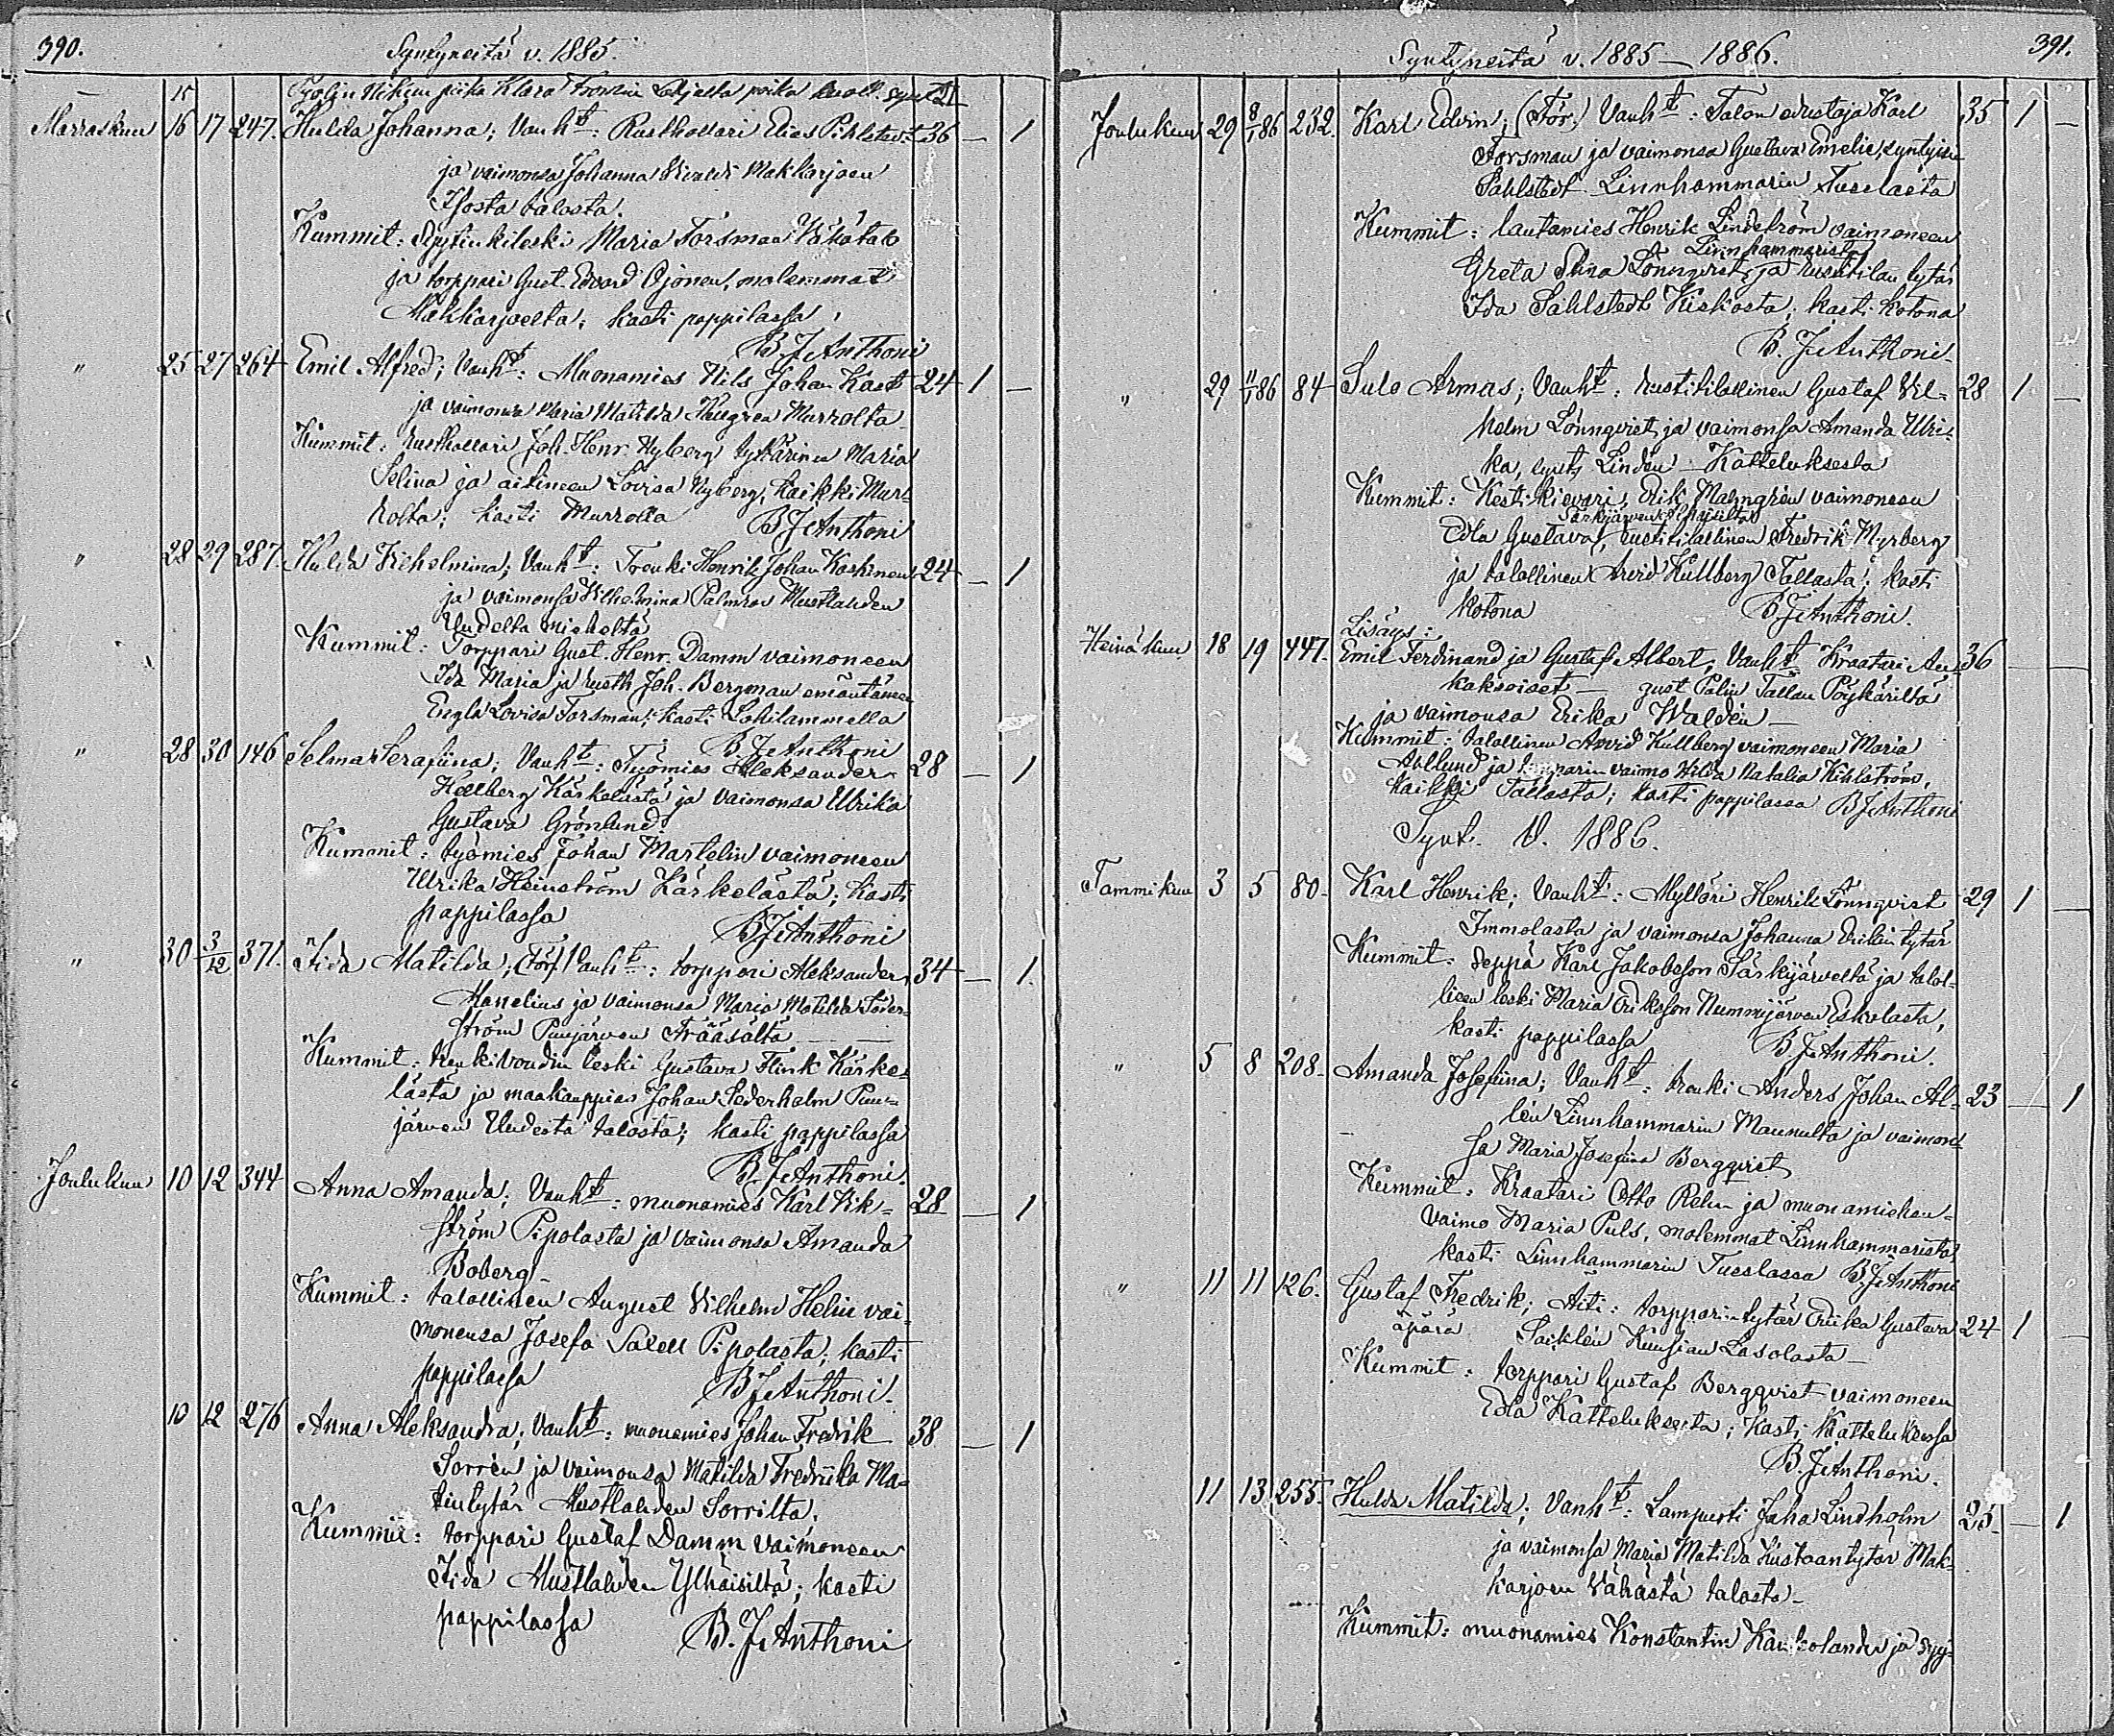 390.
Syntyneitä v. 1885.
15 piika Klara poika kuoll. synt. 21
Marraskuu 16 17 247. Hulda Johanna; Vanht: Rusthollari Elias 36 — 1
ja vaimonsa Johanna Makkarjoen
Isosta talosta.
Kummit: leski Maria Forsman
ja torppari Gust. Edvard Ojonen, molemmat
Makkarjoelta; kasti pappilassa,
B. J. Anthoni
" 25 27 264 Emil Alfred; Vanht: Muonamies Nils Johan 24 1 —
ja vaimonsa Maria Matilda Murrolta
Kummit: Rusthollari Joh. Henr. Nyberg tyttärineen Maria
Selina ja äitineen Lovisa Nyberg, kaikki Mur-
rolta; kasti Murrolla B J Anthoni
" 28 29 287. Hulda Vilhelmina; Vanht: Trenki Henrik Johan Koskinen 24 — 1
ja vaimonsa Vilhelmina Palmroos Mustlahden
Uudelta
Kummit: Torppari Gust. Henr. Damm vaimoneen
Ida Maria ja rusth. Joh. Bergman emäntäneen
Engla Lovisa Forsman; kasti Lohilammella
B J Anthoni
" 28 30 146 Selma Serafiina; Vanht: Työmies Aleksander 28 — 1
Kärkelästä ja vaimonsa Ulrika
Gustava Grönlund.
Kummit: työmies Johan Martelin vaimoneen
Ulrika Heinström Kärkelästä; kasti
pappilassa
B J Anthoni
" 30 3/12 371. Iida Matilda; (För.) Vanht: torppari Aleksander 34 — 1.
Manelius ja vaimonsa Maria Matilda Söder-
ström Puujärven Fräasältä —
Kummit: renkivoudin leski Gustava Flink Kärke-
lästä ja maakauppias Johan Sederholm Puu-
järven Uudesta talosta; kasti pappilassa
B. J. Anthoni.
Joulukuu 10 12 344 Anna Amanda; Vanht: muonamies Karl Vik- 28 — 1
ström Pipolasta ja vaimonsa Amanda
Boberg —
Kummit: talollinen August Vilhelm Helin vai-
monensa Josefa Saxell Pipolasta; kasti
pappilassa B J Anthoni.
10 12 276 Anna Aleksandra; Vanht: muonamies Johan Fredrik 38 — 1
Sorrén ja vaimonsa Matilda Fredriika Ma-
tintytär Mustlahden Sorrilta.
Kummit: torppari Gustaf Damm vaimoneen
Iida Mustlahden Ylhäisiltä; kasti
pappilassa B. J. Anthoni
Syntyneitä v. 1885 — 1886.
391.
Joulukuu 29 8/1 86 232. Karl Edvin; (För.) Vanht: Talon edustaja Karl 35 1 —
Forsman ja vaimonsa Gustava Emelie, syntyisin
Sahlstedt Linnhammarin Tuselasta
Kummit: lautamies Henrik Lindström vaimoneen
Linnhammarista
Greta Stina Lönnqvist, ja rustitilan tytär
Ida Sahlstedt Kiskosta; kasti kotona
B. J. Anthoni.
" 29 11/1 86 84 Sulo Armas; Vanht: Rustitilallinen Gustaf Vil- 28 1 —
helm Lönnqvist ja vaimonsa Amanda Ulri-
ka, synt. Lindén — Katteluksesta
Kummit: Kestikievari Erik Malmgrén vaimoneen
Särkijärven Ylhäisiltä
Edla Gustava, rustitilallinen Fredrik Myrberg
ja talollinen Arvid Kullberg Tallasta; kasti
kotona B. J. Anthoni.
Lisäys:
Heinäkuu 18 19 447. Emil Ferdinand ja Gustaf Albert, Vanht Kraatari Au- 36 —
kaksoiset — gust Palin Tallan Pöykäriltä
ja vaimonsa Erika Waldén —
Kummit: talollinen Arvid Kullberg vaimoneen Maria
Ahllund ja torpparin vaimo Hilda Natalia Kihlström,
kaikki Tallasta; kasti pappilassa B J Anthoni
Synt. V. 1886.
Tammikuu 3 5 80 Karl Henrik; Vanht: Mylläri Henrik Lönnqvist 29 1 —
Immolasta ja vaimonsa Johanna Erikin tytär
Kummit: Seppä Karl Jakobsson Särkijärveltä ja talol-
lisen leski Maria Eriksson Nummijärven Eskolasta,
kasti pappilassa B. J. Anthoni.
" 5 8 208 Amanda Josefiina; Vanht: trenki Anders Johan Al- 23 — 1
lén Linnhammarin Maunulta ja vaimon-
sa Maria Josefina Bergqvist
Kummit: Kraatari Otto Rehn ja muonamiehen
vaimo Maria Puls, molemmat Linnhammarista,
kasti Linnhammarin Tuselassa B J Anthoni
" 11 11 126. Gustaf Fredrik; Äiti: torpparin tytär Eriika Gustava 24 1 —
äpärä Lasolasta —
Kummit: torppari Gustaf Bergqvist vaimoneen
Edla Katteluksesta; kasti Katteluksessa
B. J. Anthoni.
11 13 255. Hulda Matilda; Vanht: Lampuoti Juho Lindholm 25 — 1
ja vaimonsa Maria Matilda Kustaantytär Mak-
karjoen Vähästä talosta —
Kummit: muonamies Konstantin ja syy-